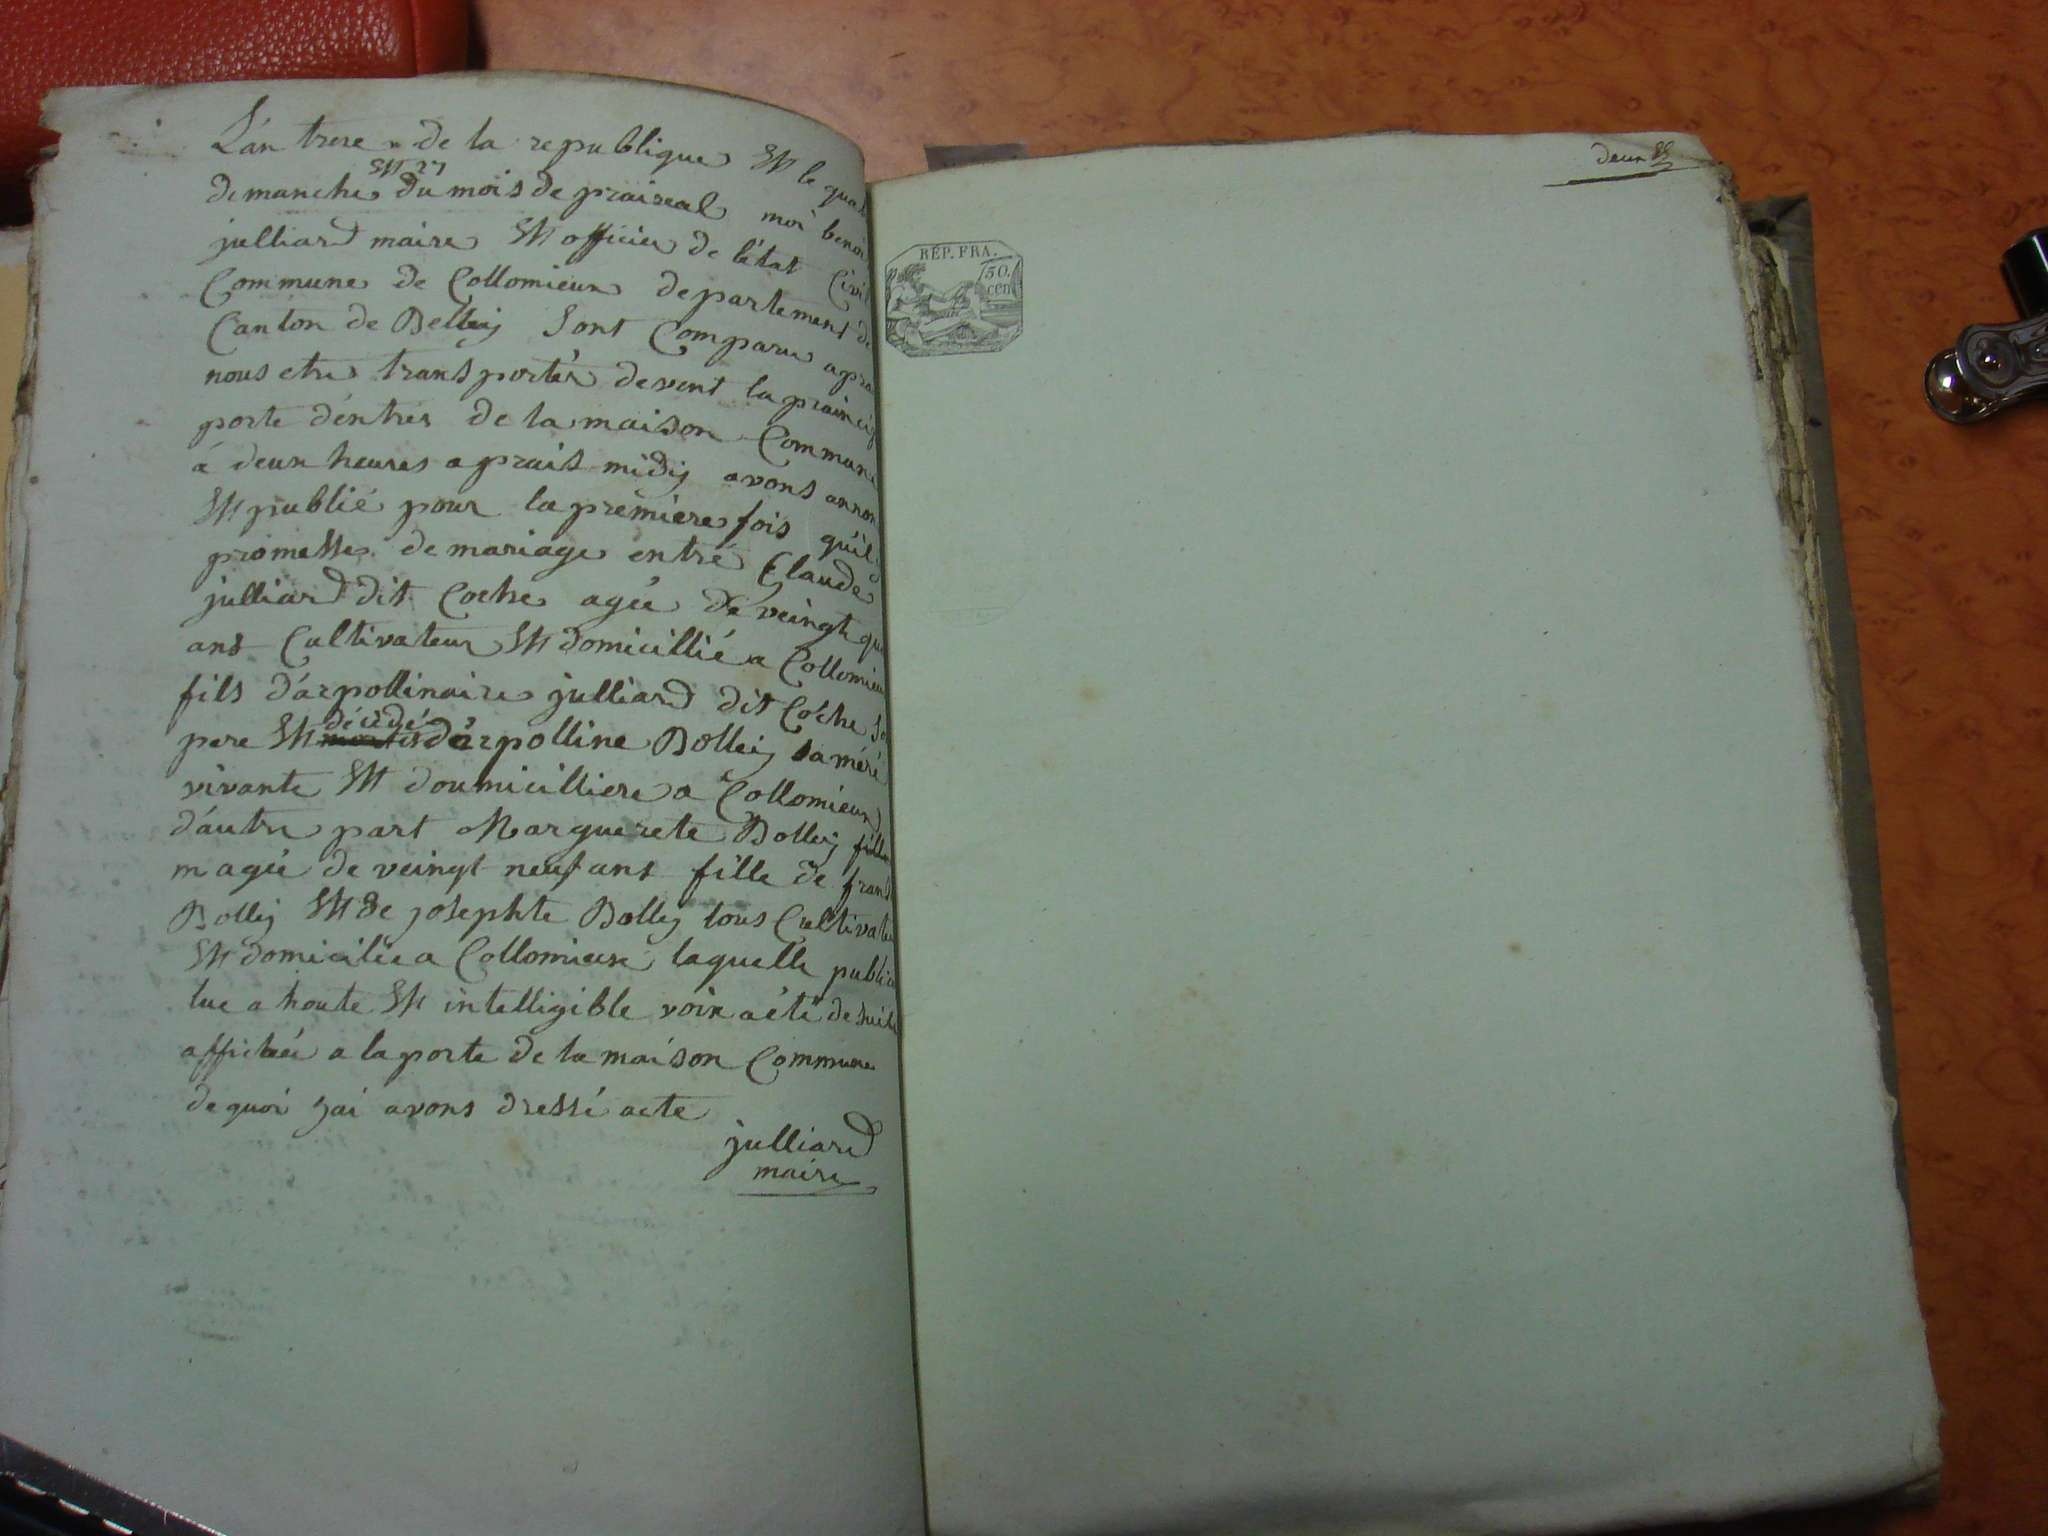 L'an treze de la republique Et le quat
Et 27
dimanche du mois de praireal moi benoi
julliard maire Et officier de l'état Civil
Commune de Collomieux departement de
Canton de Belleÿ Sont Comparu aprai
nous etre transportér devent la princip
porte d'entrer de la maison Commune
á deux heures aprais midÿ avons annon
Et publié pour la première fois qu'il
promesse de mariage entré Claude
julliard dit Coche ageé de veingt qu
ans Cultivateur Et domicillié a Collomieux
fils d'arpollinaire julliard dit Coche So
décédé
pere Et d'arpolline Bolleÿ sa méré
vivante Et doumicilliere a Collomieux
d'autre part Marguerete Bolleÿ fille
m ageé de veingt neuf ans fille de frans
Bolleÿ Et de josephte Bolleÿ tous Cultivate
Et domiciliee a Collomieux laquelle public
lue a houte Et intelligible voix a été de suite
affichée a la porte de la maison Commune
de quoi jai avons dressé acte
julliard
maire
deux
RÉP. FRA.
50.
cen